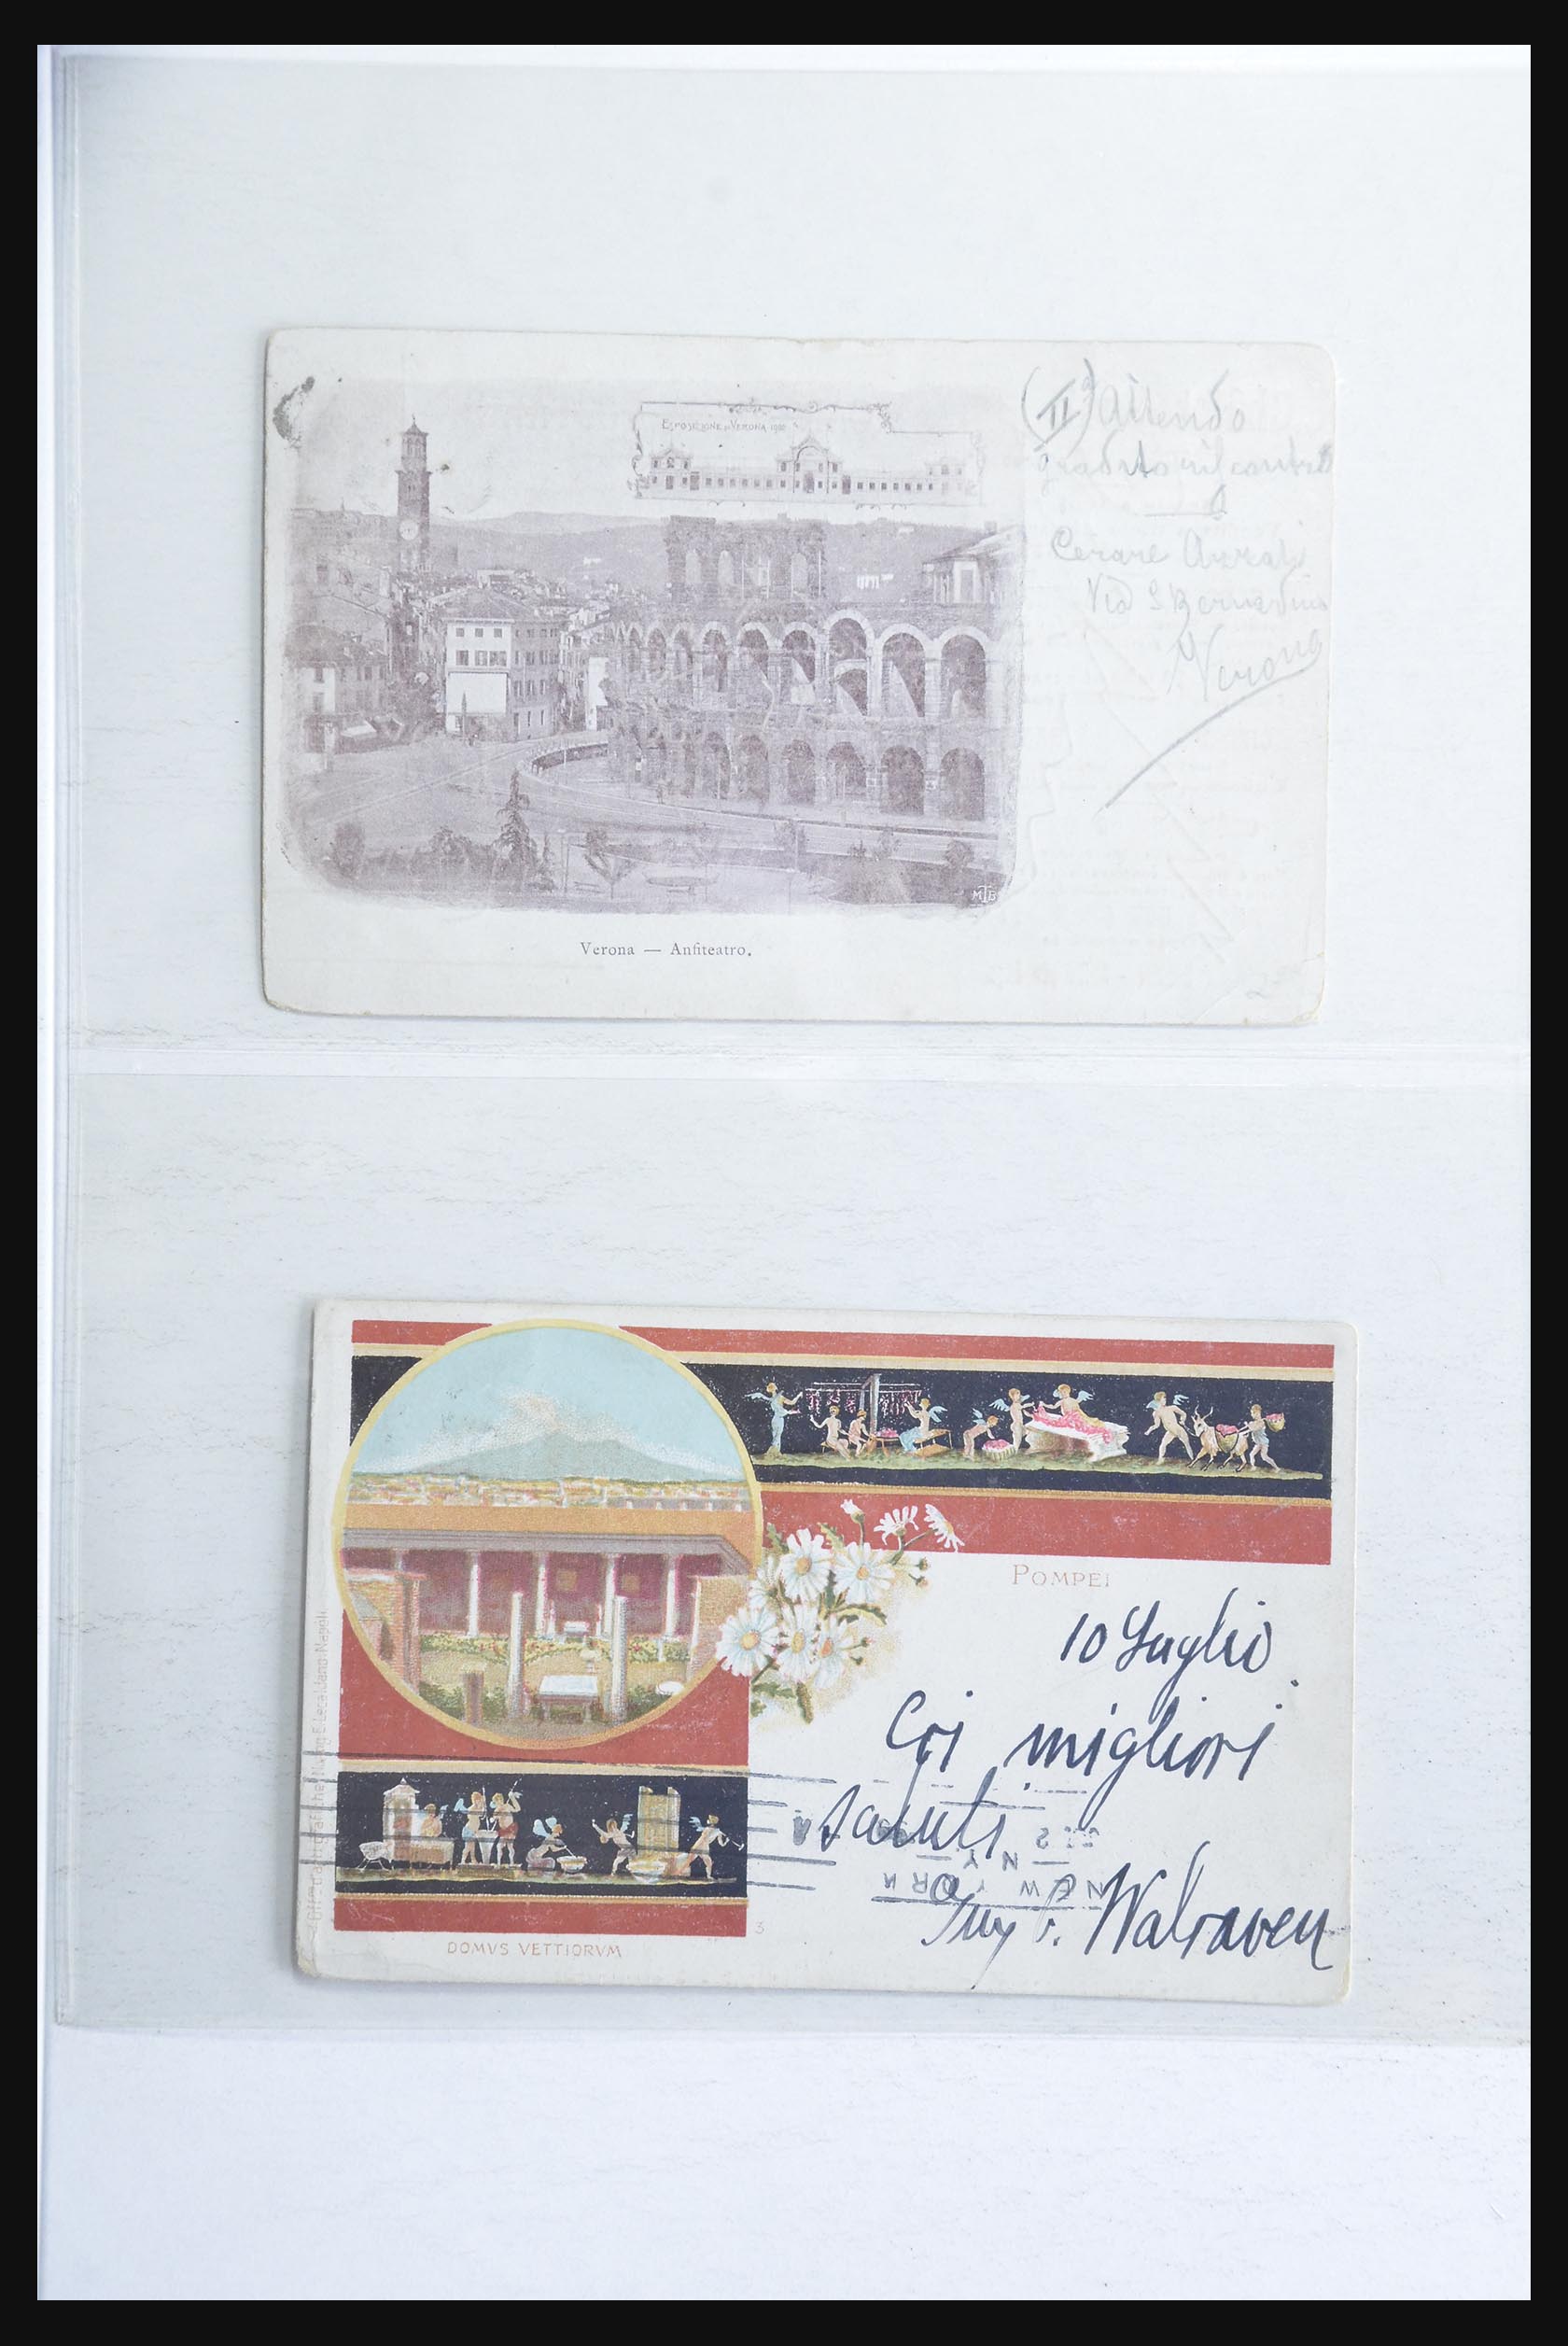 ESPOSIZIONE DI VERONA 1900
(II°) Attendo
gradito
Cesare
Via S Bernardino
Verona
MTB
Verona — Anfiteatro.
POMPEI
10 Luglio
Coi migliori
saluti
NEW YORK
N Y
Walraven
3
DOMVS VETTIORVM